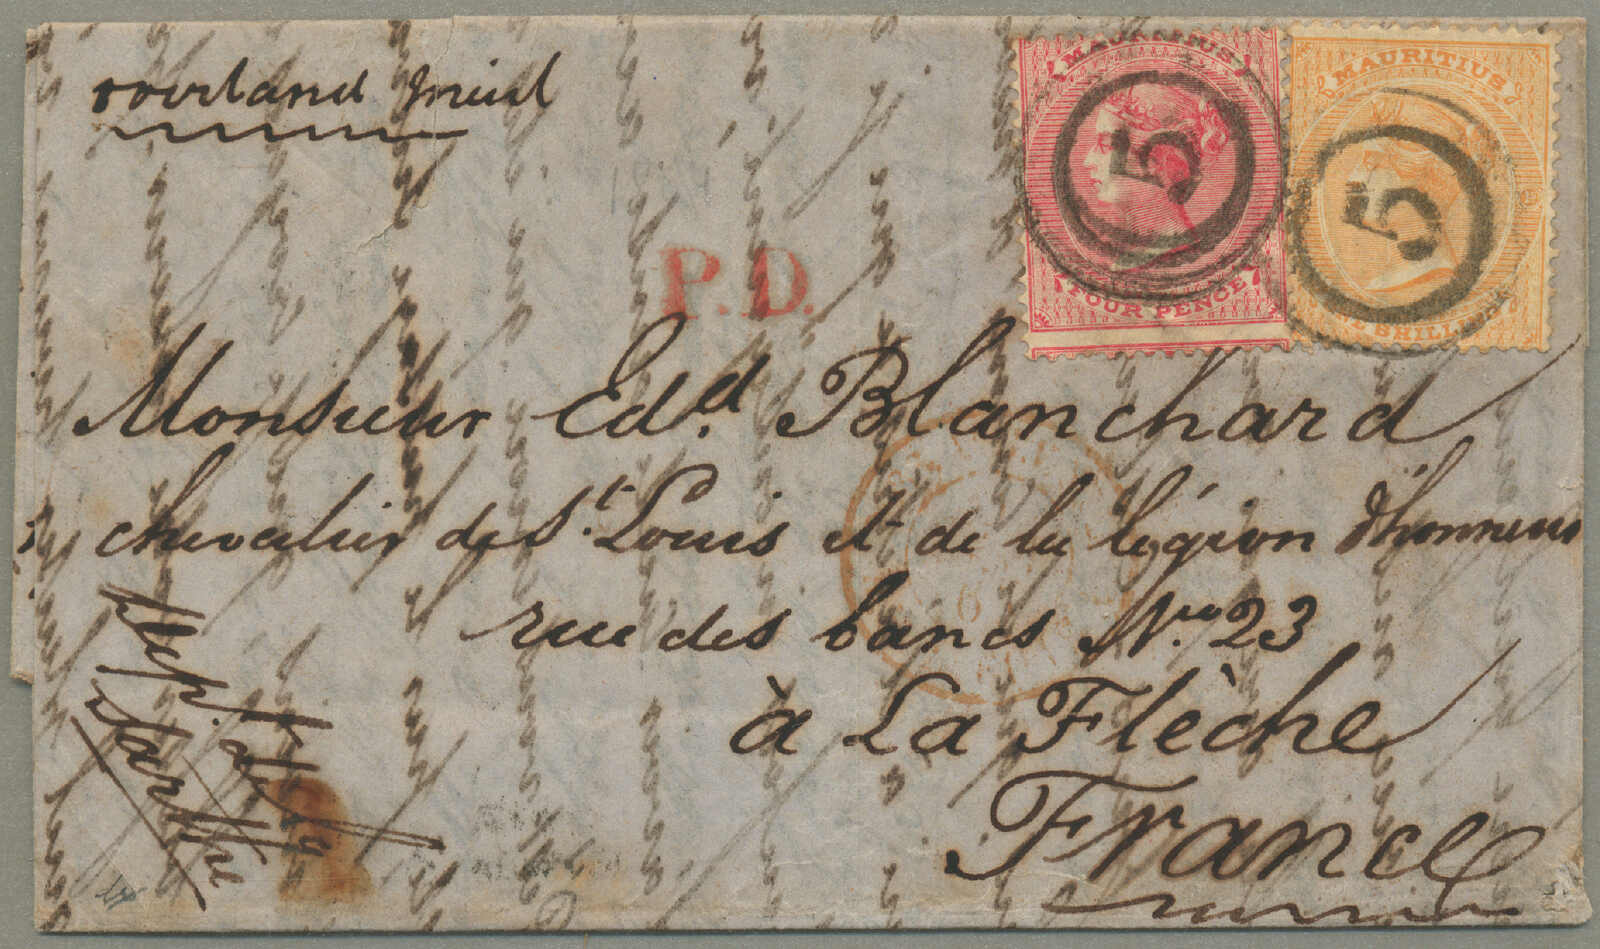 overland mail
MAURITIUS
FOUR PENCE
5
MAURITIUS
ONE SHILLING
5
P.D.
Monsieur Ed.d Blanchard
chevalier de St. Louis et de la légion d'honneur
rue des bancs No. 23
à La Flèche
France
Dép.t de la
Sarthe